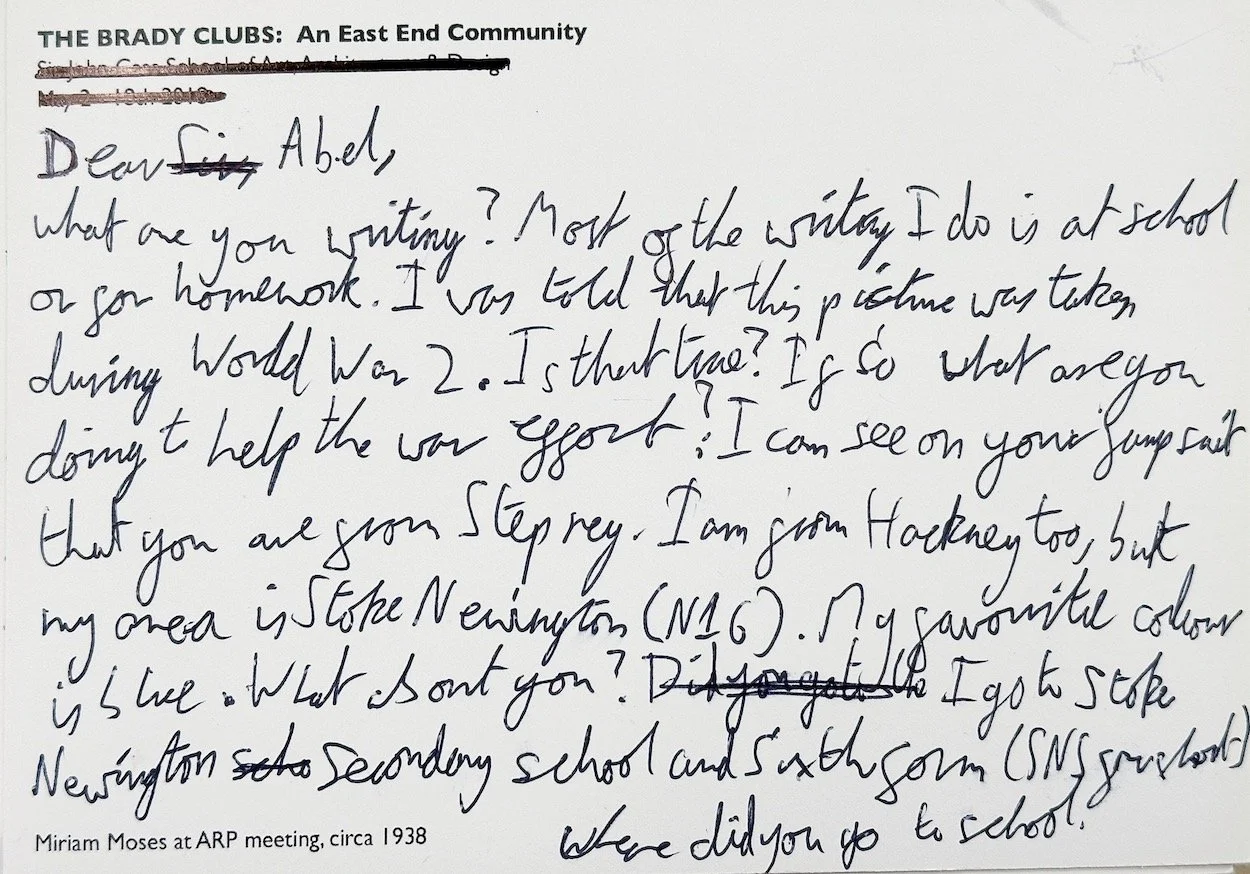 THE BRADY CLUBS: An East End Community
Sir John Cass School of Art, Architecture & Design
May 2 - 18th 2018
Dear Sir, Abel,
what are you writing? Most of the writing I do is at school
or for homework. I was told that this picture was taken
during World War 2. Is that true? If so what are you
doing to help the war effort? I can see on your jumpsuit
that you are from Stepney. I am from Hackney too, but
my area is Stoke Newington (N16). My favourite colour
is blue. What about you? Did you go to I go to Stoke
Newington scho Secondary school and Sixth form (SNS for short)
where did you go to school?
Miriam Moses at ARP meeting, circa 1938